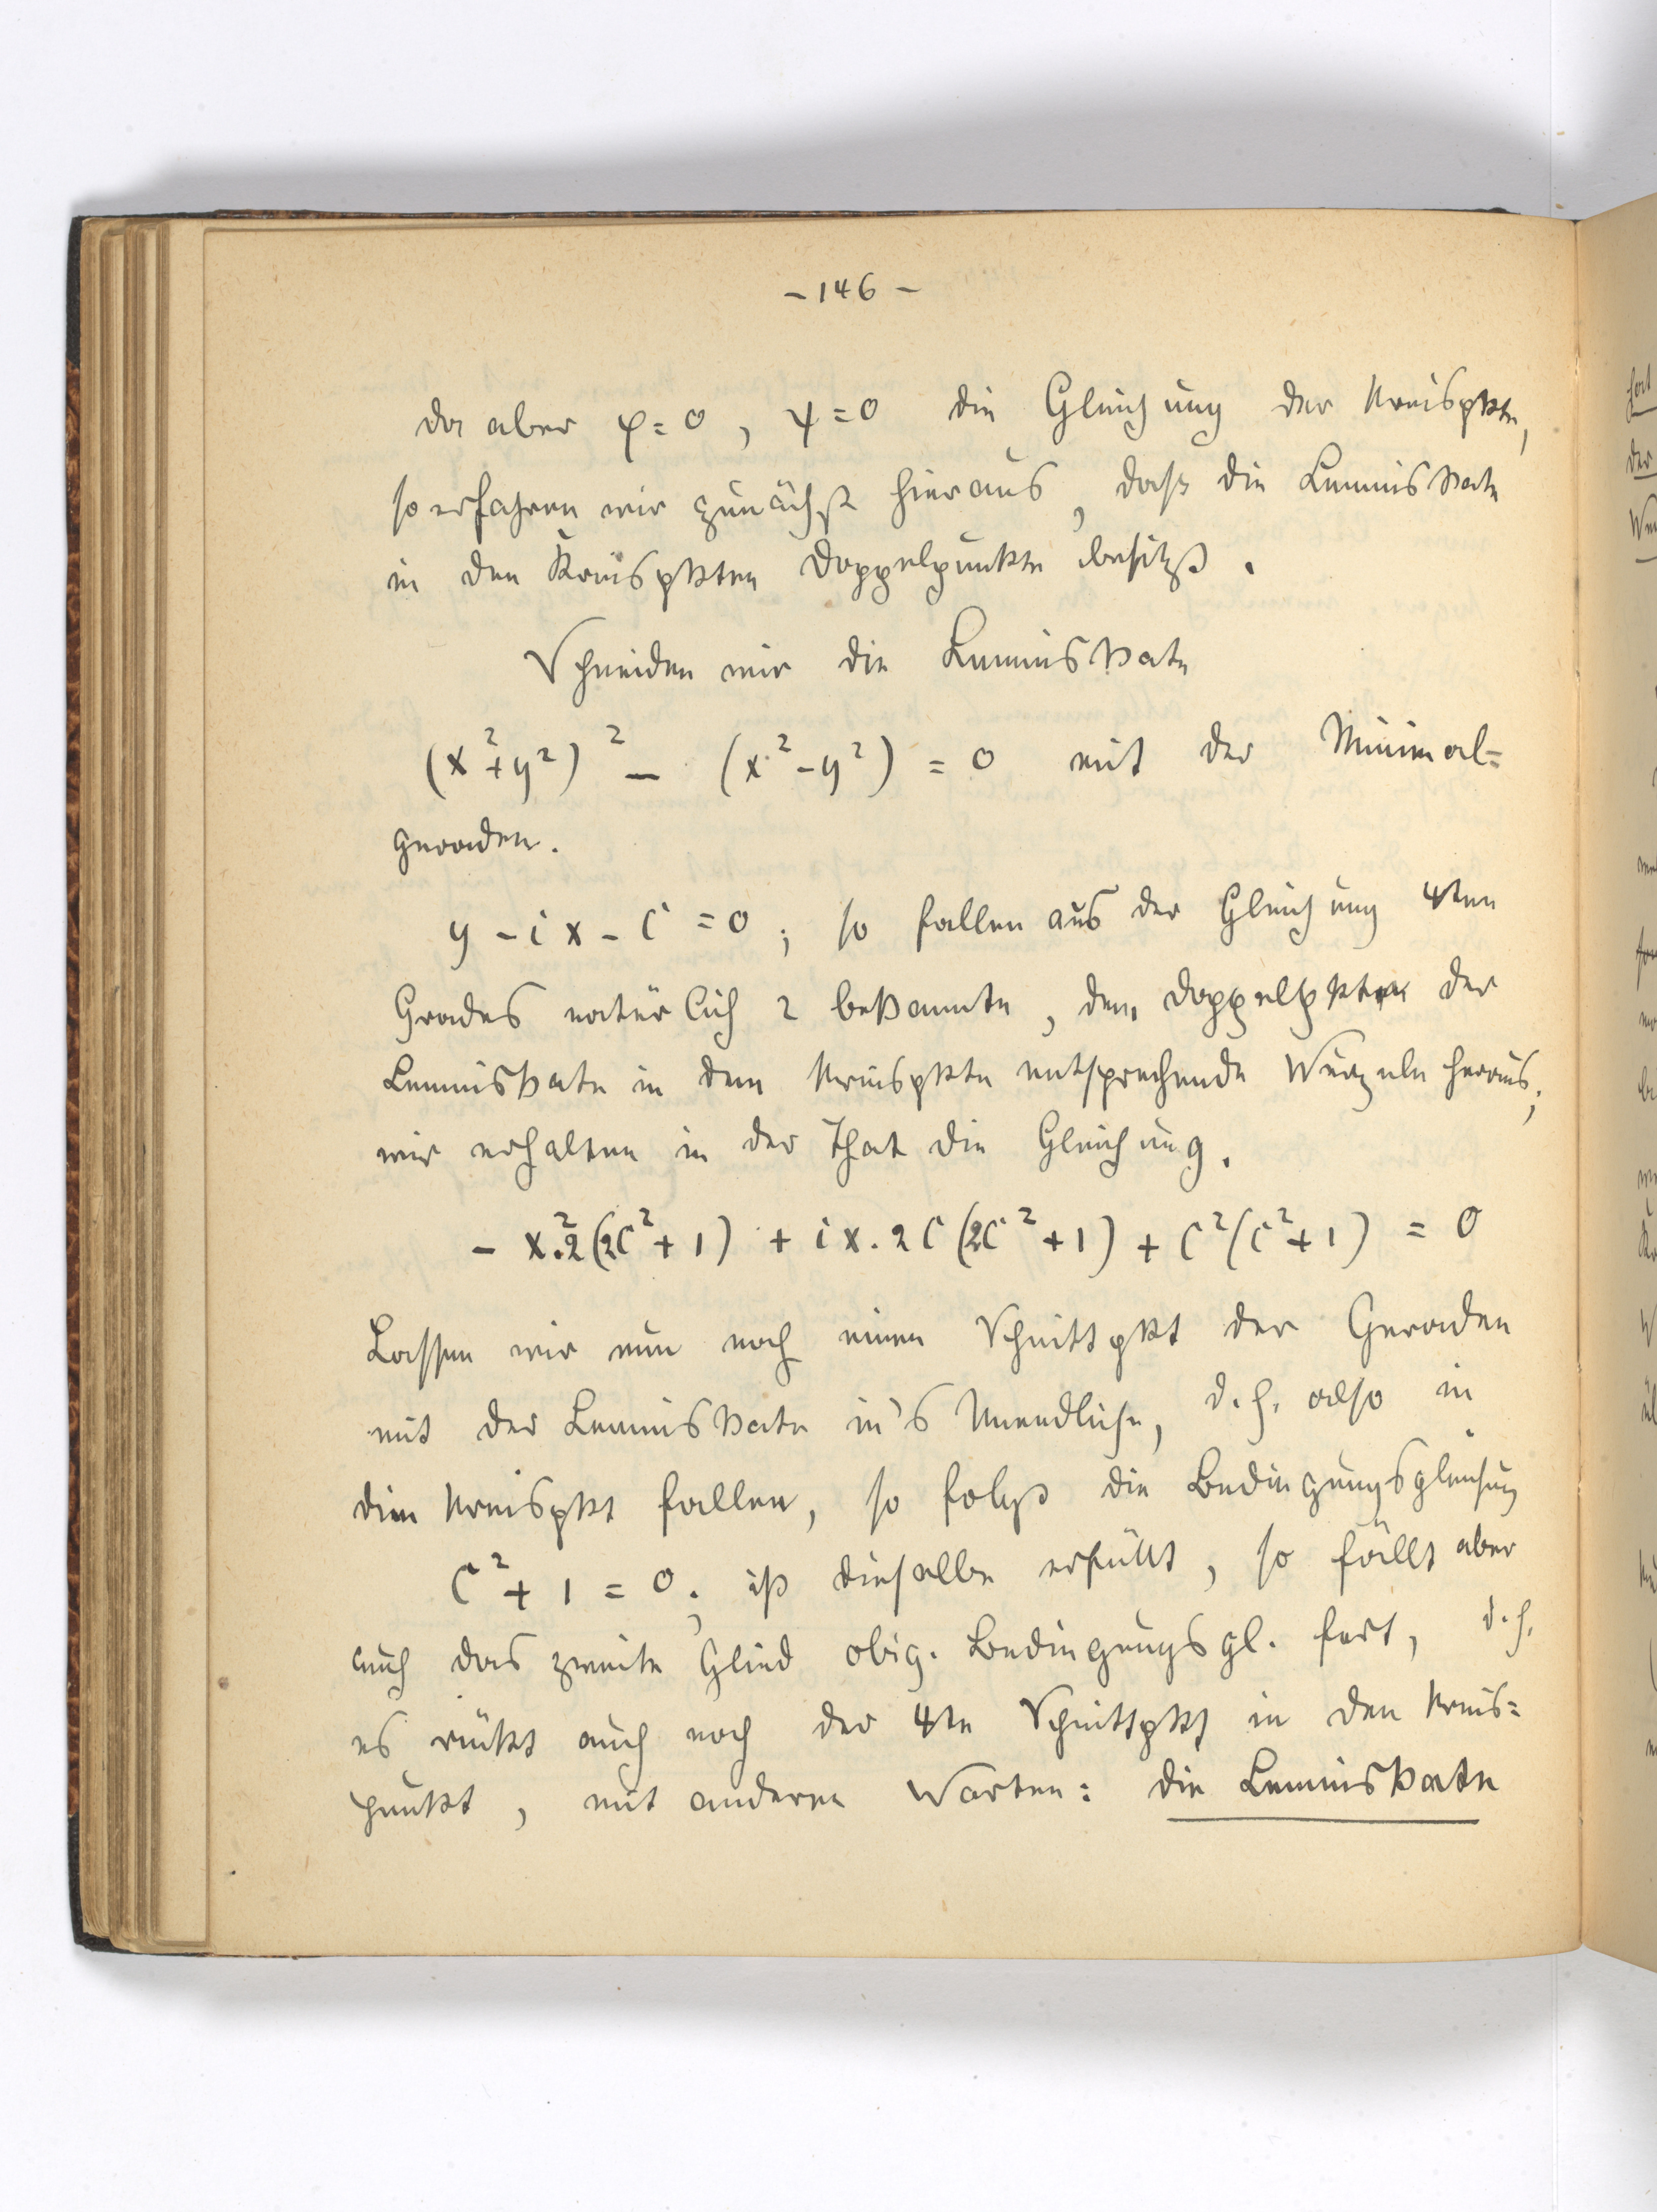 - 146 -
da aber φ = 0, ψ = 0 die Gleichung der Kreispkte,
so erfahren wir zunächst hieraus, daß die Lemniskate
in den Kreispkten Doppelpunkte besitzt.
Schneiden wir die Lemniskate
(x²+y²)² - (x²-y²) = 0 mit der Minimal=
geraden.
y - ix - C = 0; so fallen aus der Gleichung 4ten
Grades natürlich 2 bekannte, dem Doppelpkte der
Lemniskate in dem Kreispkte entsprechende Wurzeln heraus;
wir erhalten in der That die Gleichung.
- x².2(2C²+1) + ix.2C(2C²+1) + C²(C²+1) = 0
Lassen wir nun noch einen Schnittpkt der Geraden
mit der Lemniskate in's Unendliche, d.h. also in
den Kreispkt fallen, so folgt die Bedingungsgleichung
C²+1 = 0; ist dieselbe erfüllt, so fällt aber
auch das zweite Glied obig. Bedingungsgl. fort, d.h.
es rückt auch noch der 4te Schnittpkt in den Kreis=
punkt, mit anderen Worten: die Lemniskate